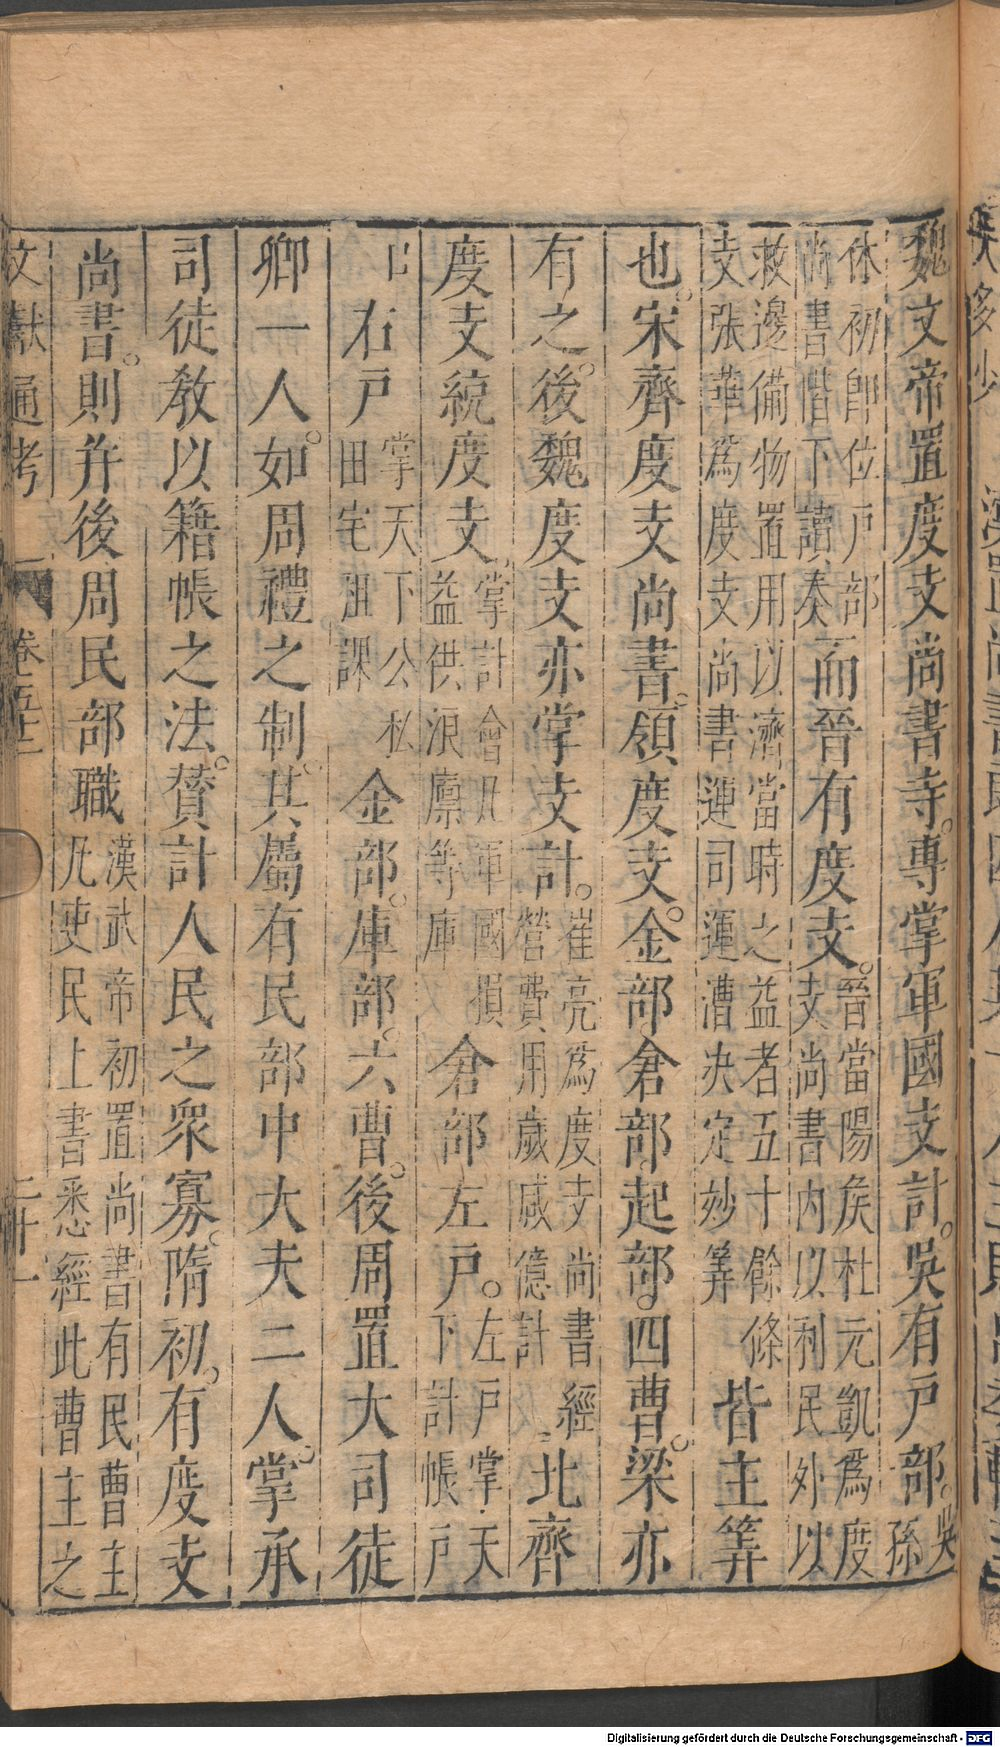 魏文帝置度支尚書寺。專掌軍國支計。吳有戶部。吳孫
休初即位戶部尚書偕下讀奏而晉有度支。晉當陽矦杜元凱爲度支尚書内以利民外以
救邊備物置用以濟當時之益者五十餘條支張華爲度支尚書運司運漕决定妙筭皆主筭
也。宋齊度支尚書。領度支。金部。倉部。起部。四曹。梁亦
有之。後魏度支亦掌支計。崔亮爲度支尚書經營費用歲減億計北齊
度支統度支。掌計會凡軍國損益供粮廪等庫倉部左戶。左戶掌天下計帳戶
口右戶掌天下公私田宅租課金部。庫部。六曹。後周置大司徒
卿一人。如周禮之制。其屬有民部中大夫二人。掌承
司徒敎以籍帳之法。賛計人民之衆寡。隋初。有度支
尚書。則并後周民部職漢武帝初置尚書有民曹主凡吏民上書悉經此曹主之
文獻通考 卷五十二 二十一